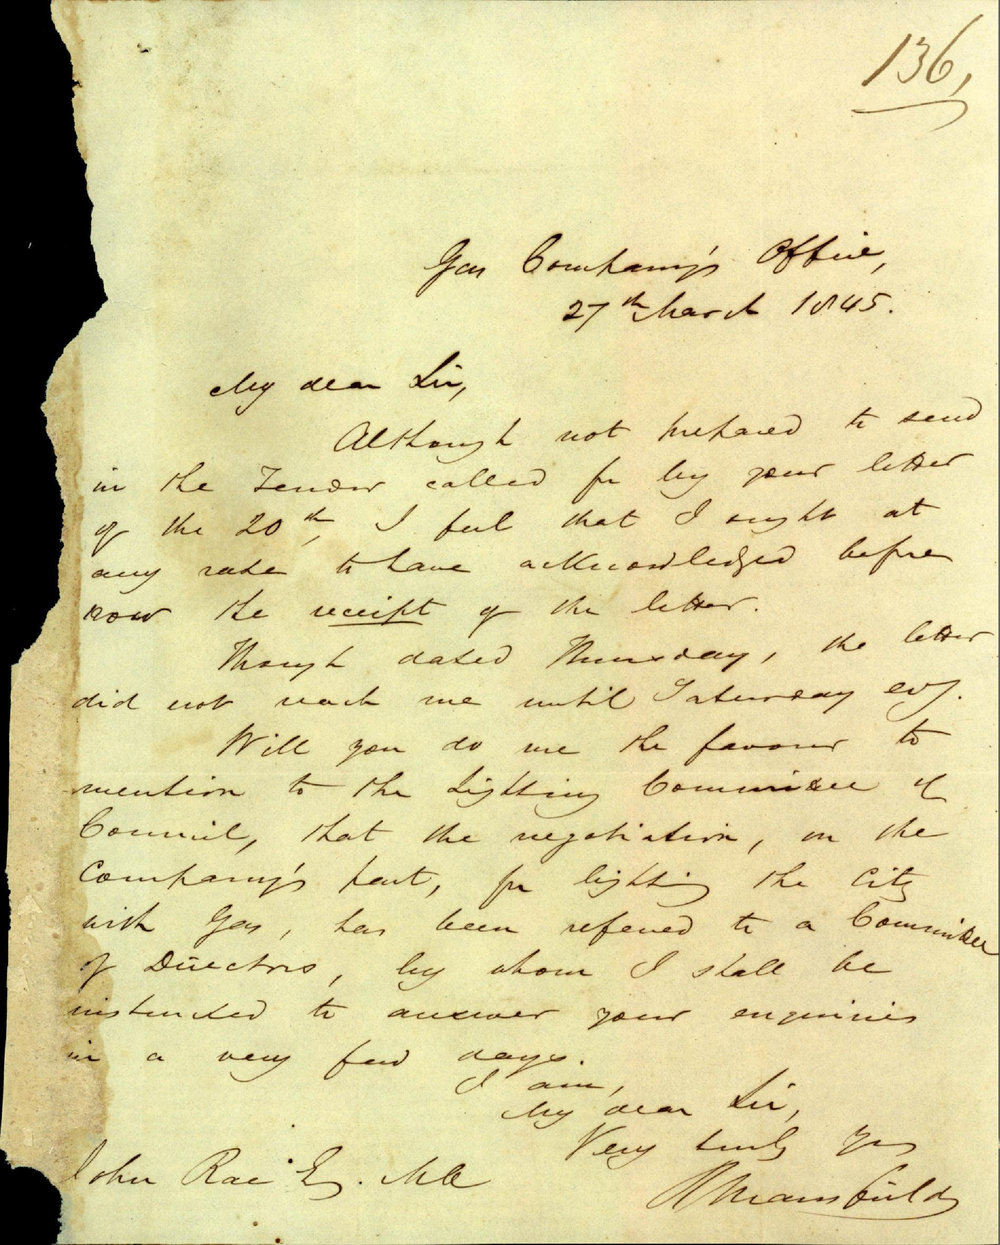 136,
Gas Company's Office,
27th March 1845.
My dear Sir,
Although not prepared to send
in the Tender called for by your letter
of the 20th, I feel that I ought at
any rate to have acknowledged before
now the receipt of the letter.
Though dated Thursday, the letter
did not reach me until Saturday evg.
Will you do me the favour to
mention to the Lighting Committee of
Council, that the negotiation, on the
Company's part, for lighting the City
with Gas, has been referred to a Committee
of Directors, by whom I shall be
instructed to answer your enquiries
in a very few days.
I am,
My dear Sir,
Very truly yrs
Mansfield
John Rae Esq. MA